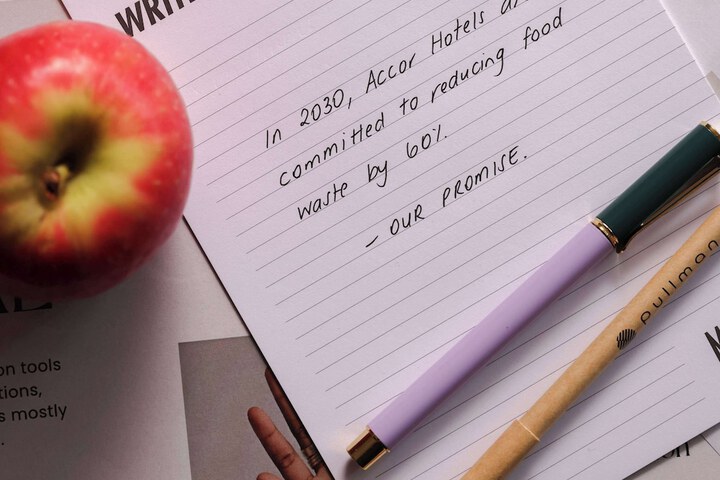 In 2030, Accor Hotels
committed to reducing food
waste by 60%.
- OUR PROMISE.
pullman
on tools
mostly